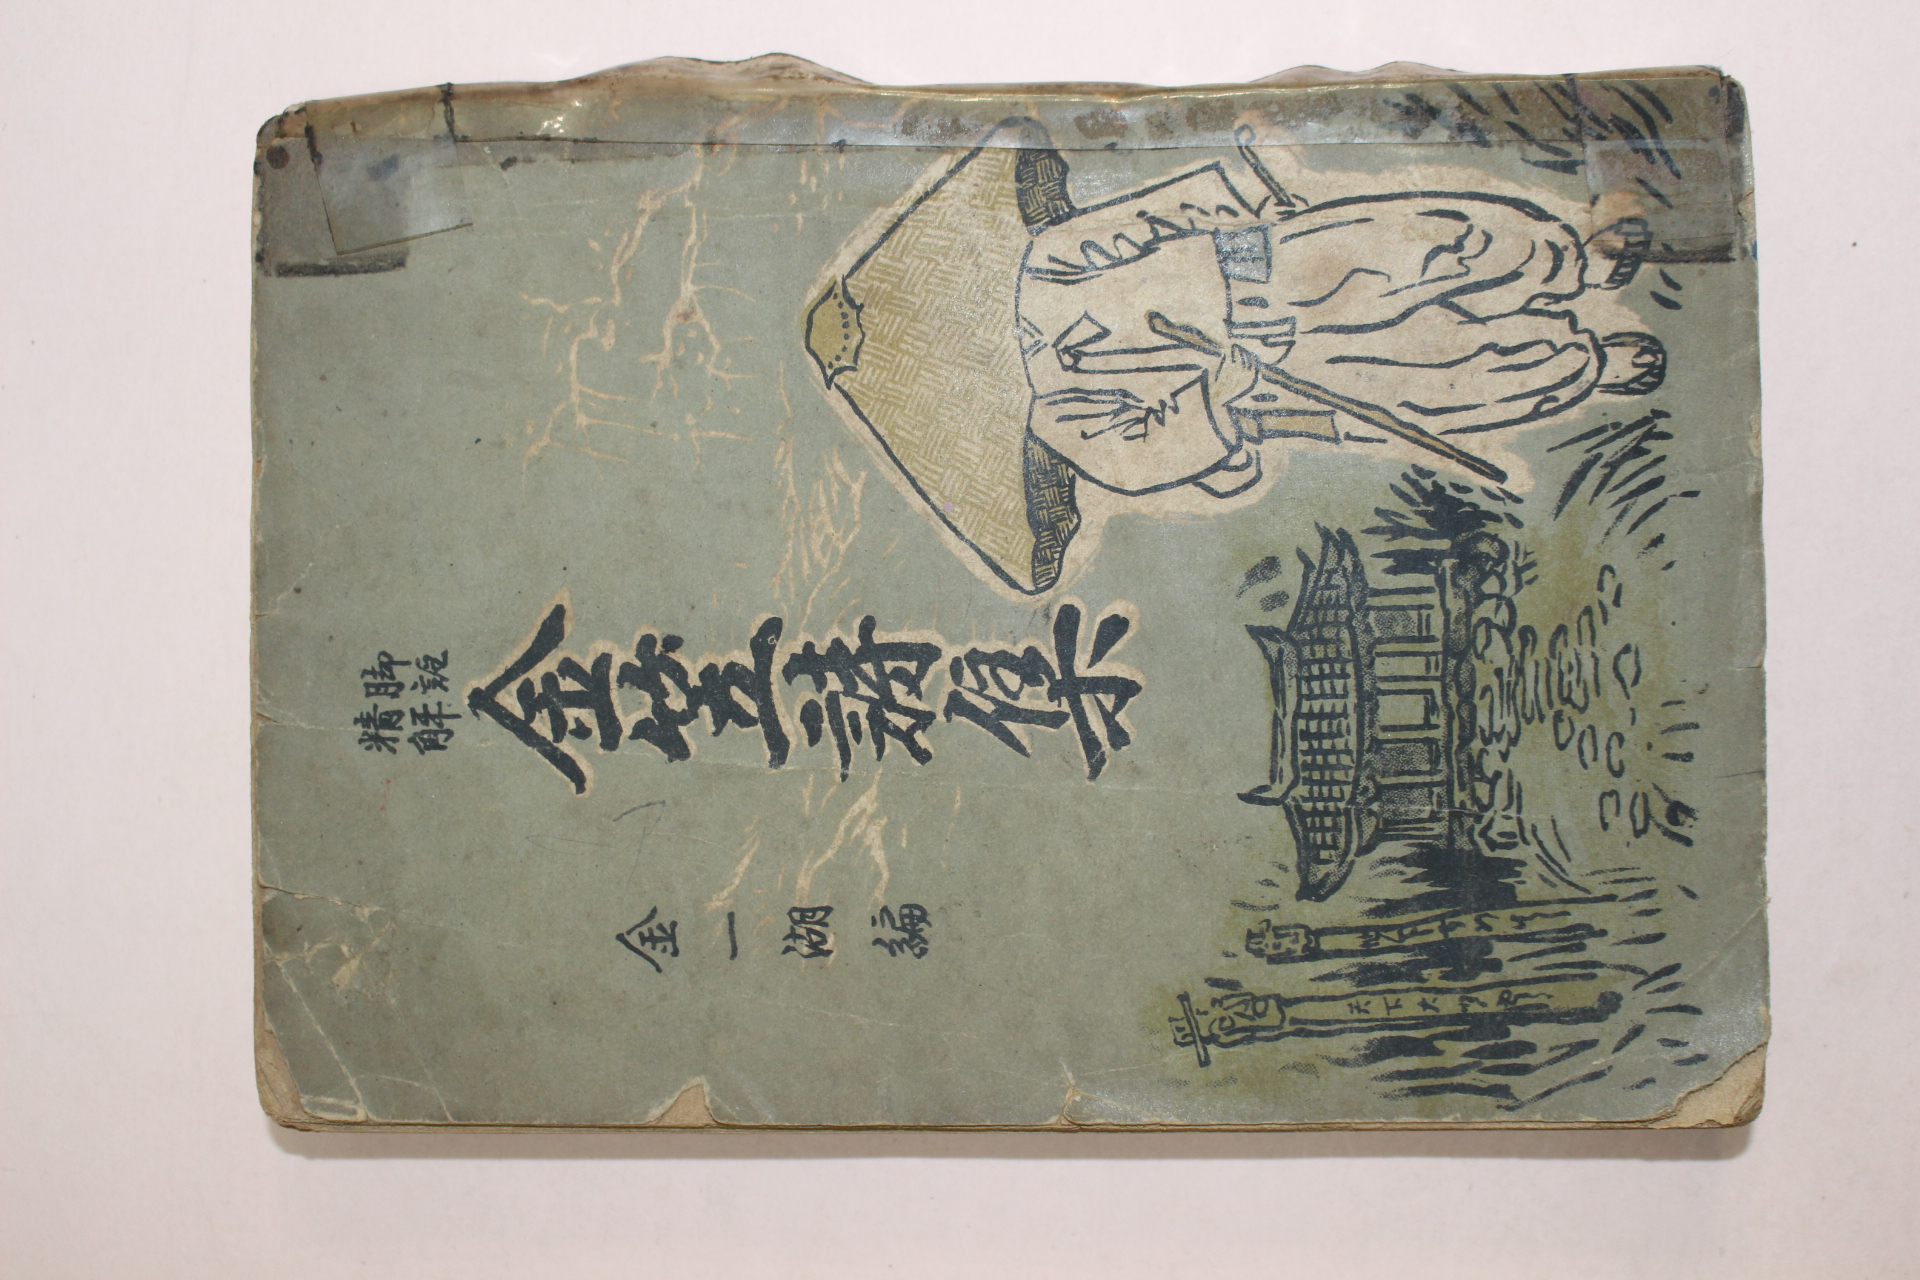 脚註
精解
金笠詩集
金一湖編
天下大將軍